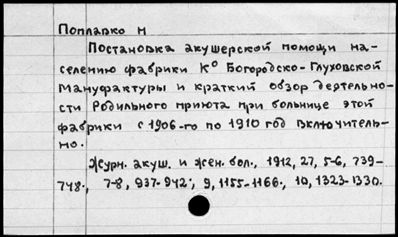 Поплавко Н
Постановка акушерской помощи на-
селению фабрики Ко Богородско-Глуховской
мануфактуры и краткий обзор деятельно-
сти Родильного приюта при больнице этой
фабрики с 1906-го по 1910 год включитель-
но.
Журн. акуш. и жен. бол., 1912, 27, 5-6, 739-
748., 7-8, 937-942; 9, 1155-1166., 10, 1323-1330.